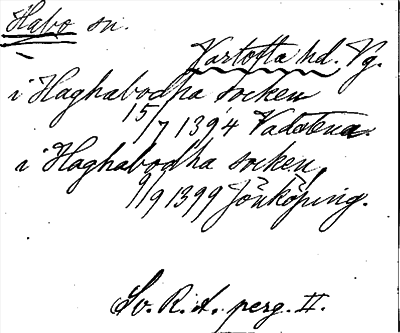 Habo sn.
Vartofta hd. Vg.
i Haghabodha socken
15/7 1394 Vadstena
i Haghabodha socken
9/9 1399 Jönköping.
Sv. R. A. perg. II.